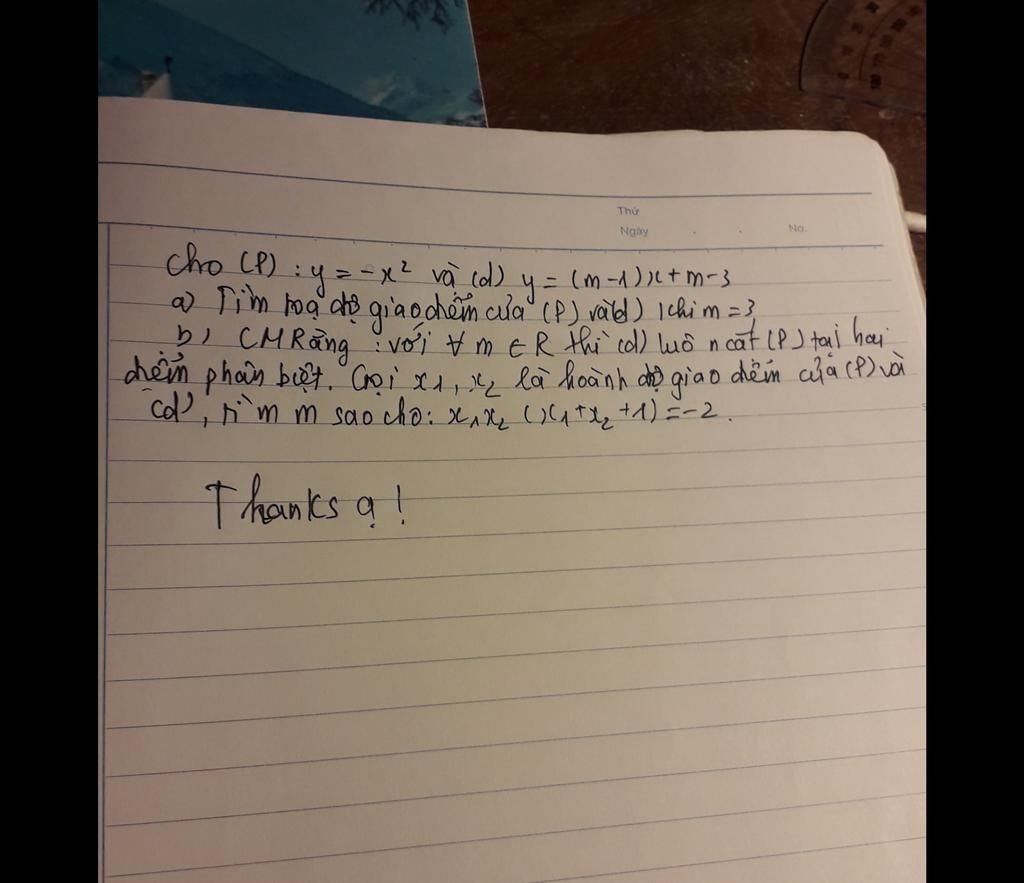 Thứ
Ngày . . No.
Cho (P) : y = -x² và (d) y = (m-1)x + m-3
a) Tìm toạ độ giao điểm của (P) và (d) khi m = 3
b) CMRằng : với ∀ m ∈ R thì (d) luôn cắt (P) tại hai
điểm phân biệt. Gọi x1, x2 là hoành độ giao điểm của (P) và
(d), tìm m sao cho: x₁x₂ (x₁+x₂+1) = -2.
Thanks ạ !